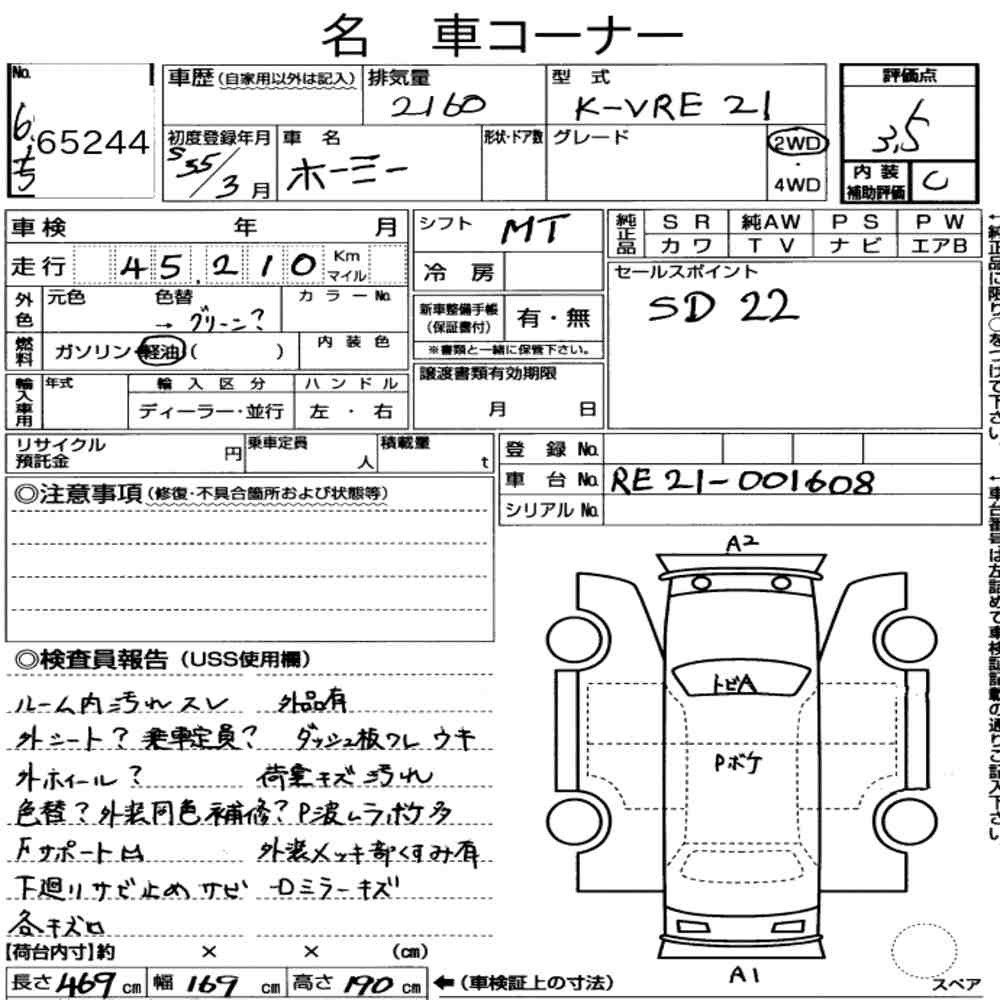 名 車コーナー
No.
6
65244
車歴 (自家用以外は記入)
排気量
2160
型式
K-VRE 21
評価点
3.5
初度登録年月
S55/3月
車名
ホーミー
形状・ドア数
グレード
2WD
・
4WD
内装
補助評価
C
車検 年 月
走行 45,210 Km マイル
外色
元色 色替 → グリーン?
カラーNo.
燃料
ガソリン・軽油( )
内装色
輸入車用
年式
輸入区分
ディーラー・並行
ハンドル
左・右
シフト MT
冷房
新車整備手帳
(保証書付)
有・無
※書類と一緒に保管下さい。
譲渡書類有効期限
月 日
純正品
SR 純AW PS PW
カワ TV ナビ エアB
セールスポイント
SD 22
←純正品に限り○をつけて下さい。
リサイクル預託金 円
乗車定員 人
積載量 t
登録No.
車台No. RE21-001608
シリアルNo.
←車台番号は左詰めで車検証記載の通りご記入下さい。
◎注意事項(修復・不具合箇所および状態等)
◎検査員報告(USS使用欄)
ルーム内汚れスレ 外品有
外シート? 乗車定員? ダッシュ板ワレ ウキ
外ホイール? 荷室キズ汚れ
色替? 外装同色補修? P波ムラボケ多
Fサポート凹 外装メッキ部くすみ有
下廻りサビ止めサビ Dミラーキズ
各キズ凹
【荷台内寸】約 × × (cm)
長さ 469 cm 幅 169 cm 高さ 190 cm ←(車検証上の寸法)
A2
トビA
Pボケ
A1
スペア